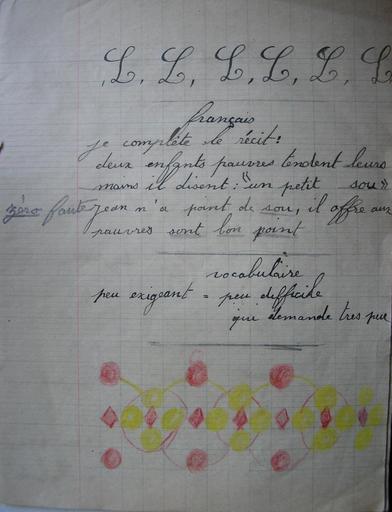 L. L, L, L, L, L
français
je complète le récit:
deux enfants pauvres tendent leurs
mains il disent: "un petit sou"
zéro faute Jean n'a point de sou, il offre aux
pauvres sont bon point
vocabulaire
peu exigeant = peu difficile
qui demande tres peu